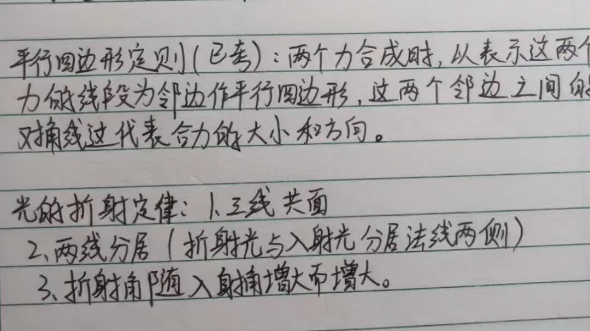 平行四边形定则(已考):两个力合成时,以表示这两个
力的线段为邻边作平行四边形,这两个邻边之间的
对角线这代表合力的大小和方向。
光的折射定律:1.三线共面
2.两线分居(折射光与入射光分居法线两侧)
3.折射角随入射角增大而增大。